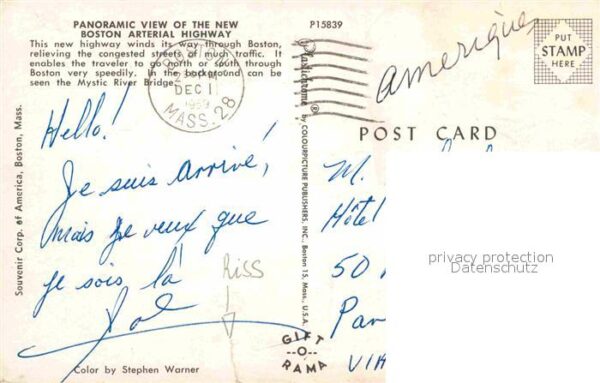 PANORAMIC VIEW OF THE NEW
BOSTON ARTERIAL HIGHWAY
This new highway winds its way through Boston,
relieving the congested streets of much traffic. It
enables the traveler to go north or south through
Boston very speedily. In the background can be
seen the Mystic River Bridge.
P15839
DEC 1
1959
MASS. 28
Amerique
PUT
STAMP
HERE
POST CARD
Hello!
Je suis arrivé,
mais je veux que
je sois là
RISS
Souvenir Corp. of America, Boston, Mass.
Plastichrome ® by COLOURPICTURE PUBLISHERS, INC., Boston 15, Mass., U.S.A.
M.
Hôtel
50
Par
VIK
privacy protection
Datenschutz
GIFT
-O-
RAMA
Color by Stephen Warner